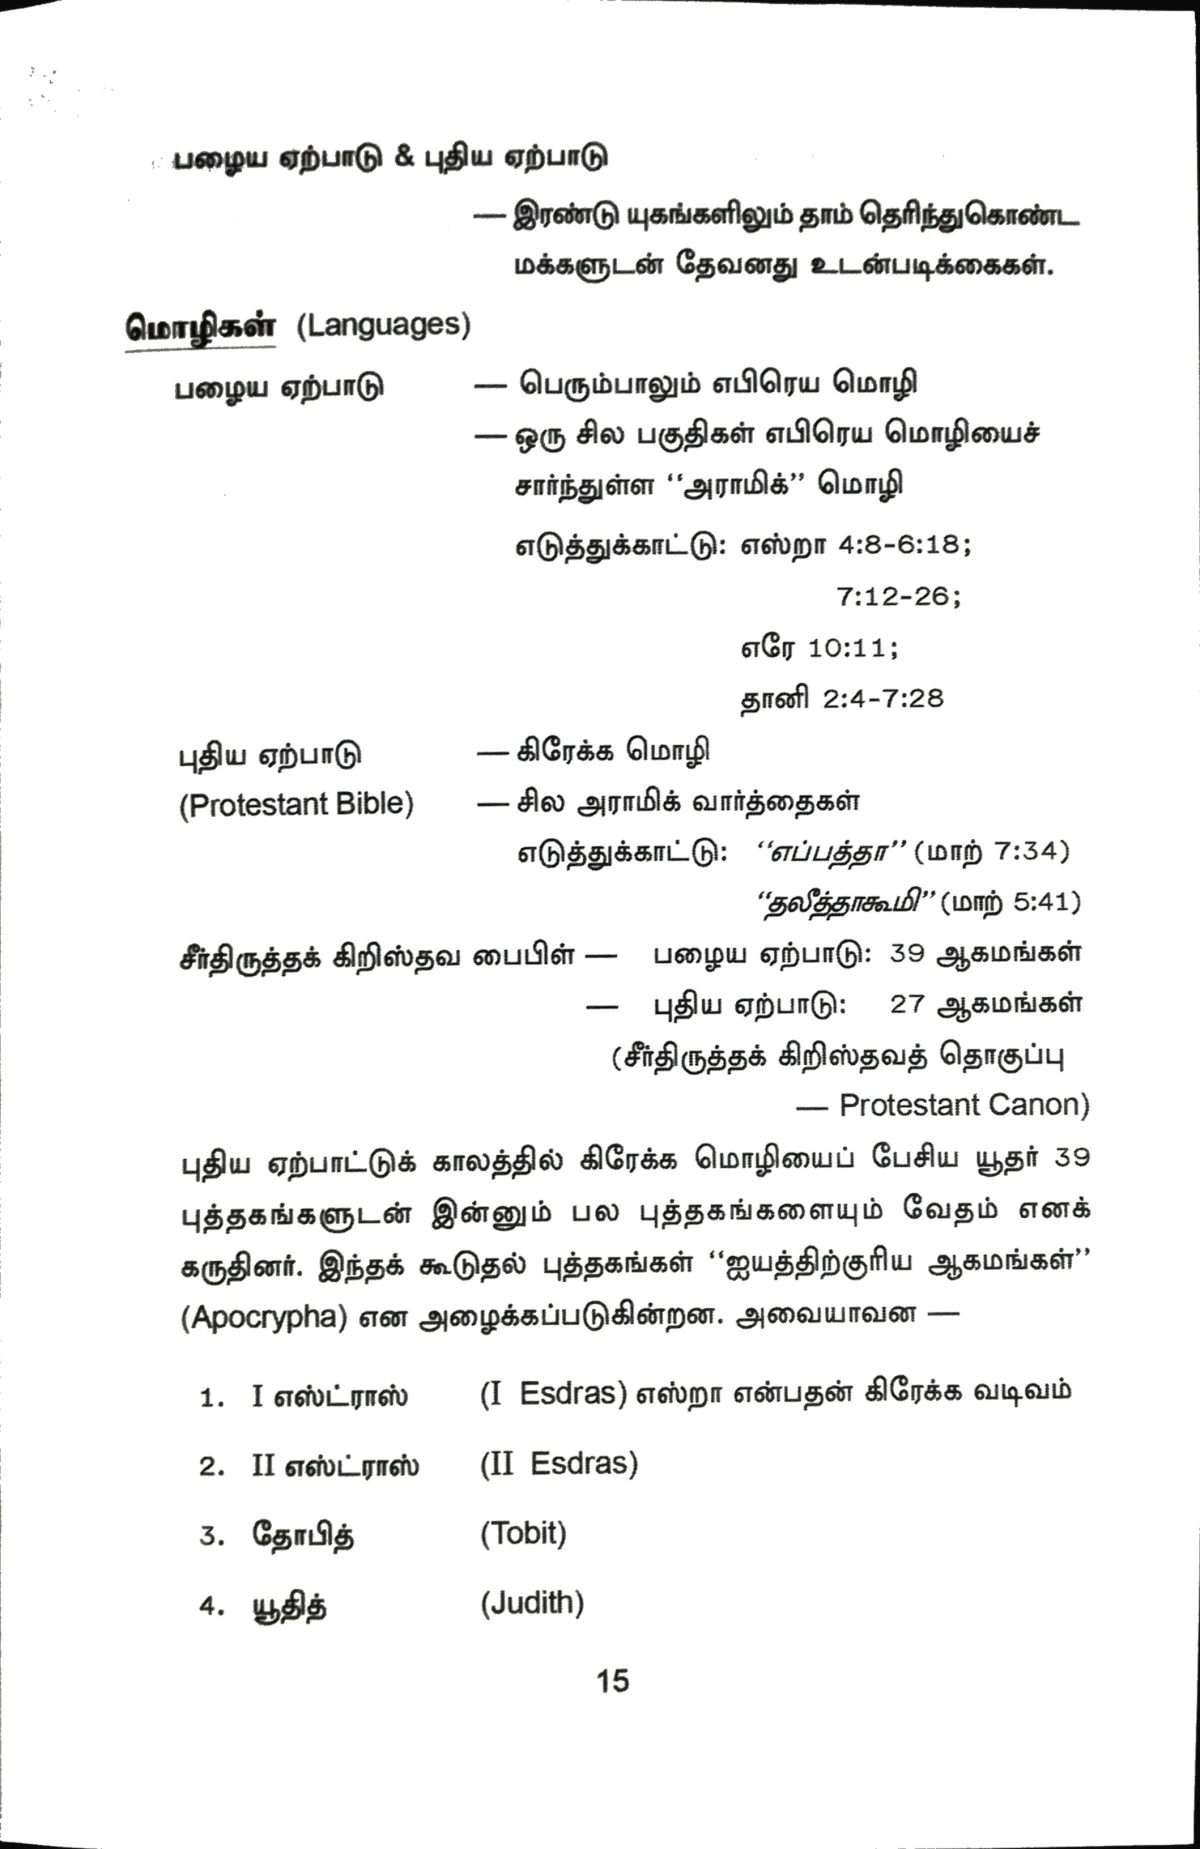 பழைய ஏற்பாடு & புதிய ஏற்பாடு
— இரண்டு யுகங்களிலும் தாம் தெரிந்துகொண்ட
மக்களுடன் தேவனது உடன்படிக்கைகள்.
மொழிகள் (Languages)
பழைய ஏற்பாடு — பெரும்பாலும் எபிரெய மொழி
— ஒரு சில பகுதிகள் எபிரெய மொழியைச்
சார்ந்துள்ள “அராமிக்” மொழி
எடுத்துக்காட்டு: எஸ்றா 4:8-6:18;
7:12-26;
எரே 10:11;
தானி 2:4-7:28
புதிய ஏற்பாடு — கிரேக்க மொழி
(Protestant Bible) — சில அராமிக் வார்த்தைகள்
எடுத்துக்காட்டு: “எப்பத்தா” (மாற் 7:34)
“தலீத்தாகூமி” (மாற் 5:41)
சீர்திருத்தக் கிறிஸ்தவ பைபிள் — பழைய ஏற்பாடு: 39 ஆகமங்கள்
— புதிய ஏற்பாடு: 27 ஆகமங்கள்
(சீர்திருத்தக் கிறிஸ்தவத் தொகுப்பு
— Protestant Canon)
புதிய ஏற்பாட்டுக் காலத்தில் கிரேக்க மொழியைப் பேசிய யூதர் 39
புத்தகங்களுடன் இன்னும் பல புத்தகங்களையும் வேதம் எனக்
கருதினர். இந்தக் கூடுதல் புத்தகங்கள் “ஐயத்திற்குரிய ஆகமங்கள்”
(Apocrypha) என அழைக்கப்படுகின்றன. அவையாவன —
1. I எஸ்ட்ராஸ் (I Esdras) எஸ்றா என்பதன் கிரேக்க வடிவம்
2. II எஸ்ட்ராஸ் (II Esdras)
3. தோபித் (Tobit)
4. யூதித் (Judith)
15